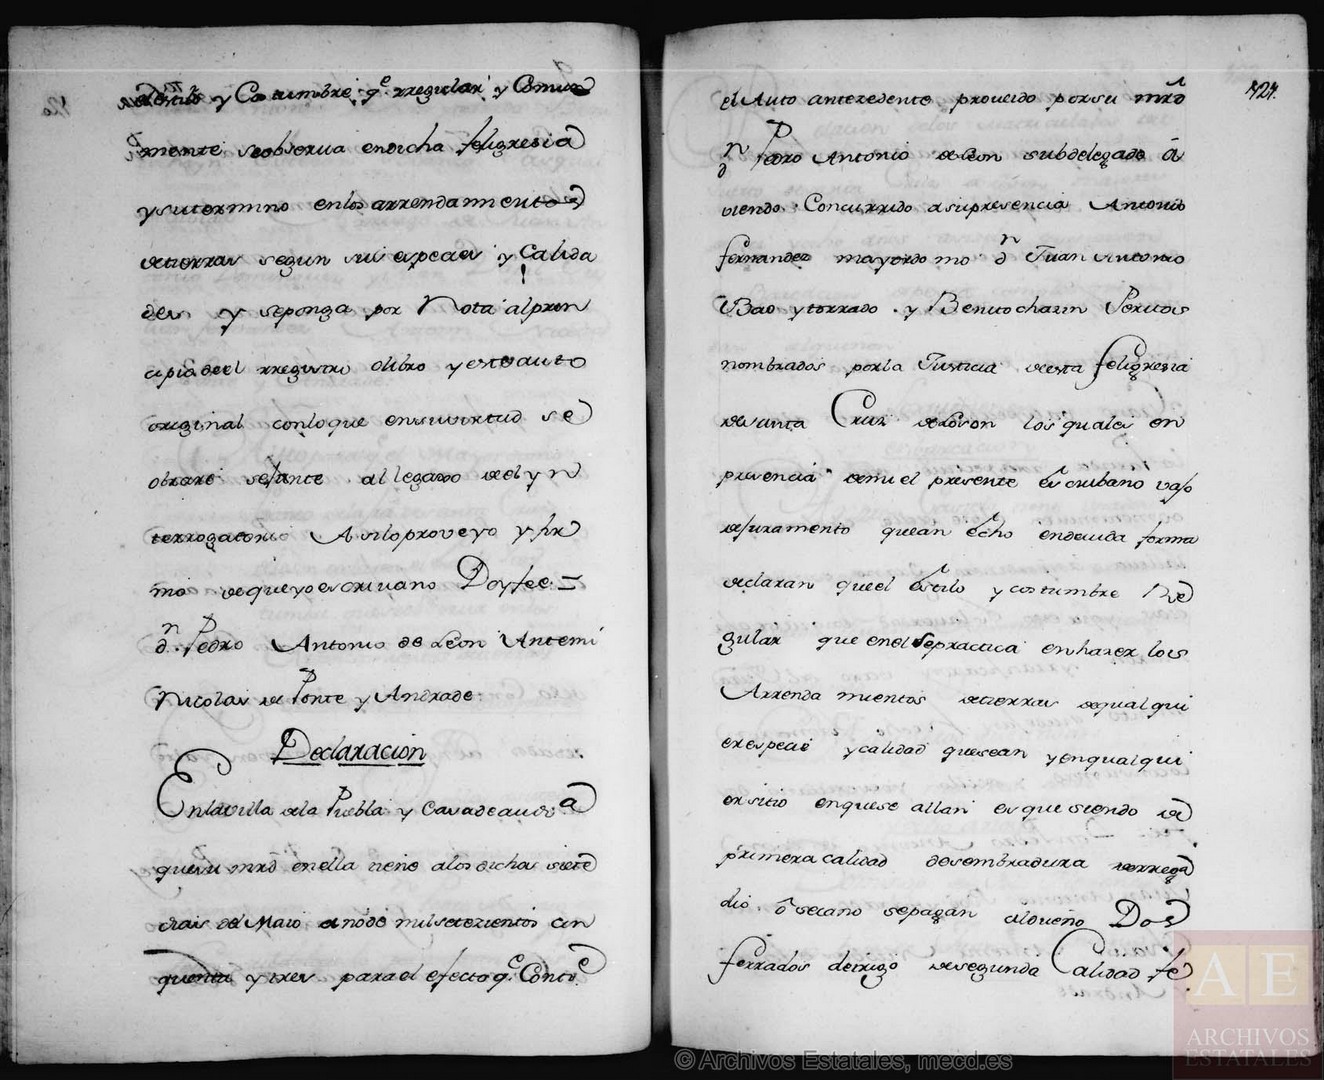 y Costumbre q.e rregular y Comun
mente seobserua endicha feligresia
ysutermino enlos arrendamientos
detierras segun sus especies y Calida
des y seponga por Nota alprin
cipiodeel rregistro olibro yesteauto
original conloque ensuvirtud se
obrare sejunte allegaxo deelyn
terrogatorio Asiloproveyo yfir
mo dequeyoescrivano Doyfee=
d.n Pedro Antonio de Leon Antemi
Nicolas de Ponte y Andrade
Declaracion
Enlavilla dela Puebla y Casadeaudi.a
quesu mrd enella tiene alosdichos siete
dias del Maio añode milsetezientos cin
quenta ytres paraelefectoq.e Conti.e
424.
elAuto antezedente proueido porsu mrd
d.n Pedro Antonio deLeon subdelegado á
viendo Concurrido asupresencia Antonio
fernandez mayordomo d.n Juan Antonio
Bao ytorrado y Benito charin Peritos
nombrados porla Justicia deesta feligresia
desanta Cruz deLeson los quales en
presencia demi el presente Escribano vajo
dejuramento quean echo endeuida forma
declaran queel Estilo y costumbre Re
gular que enel sepractica enhazer los
Arrendamientos detierras dequalqui
erespecie ycalidad quesean yenqualqui
ersitio enquese allan esque siendo de
primera calidad desembradura derrega
dio. ó secano sepagan aldueño Dos
ferrados detrigo desegunda Calidad fe
AE
ARCHIVOS
ESTATALES
© Archivos Estatales, mecd.es